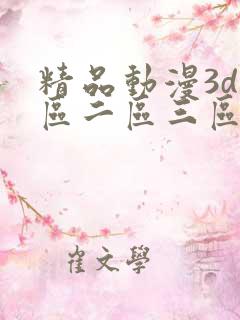 精品動漫3d
區二區三區
崔文學